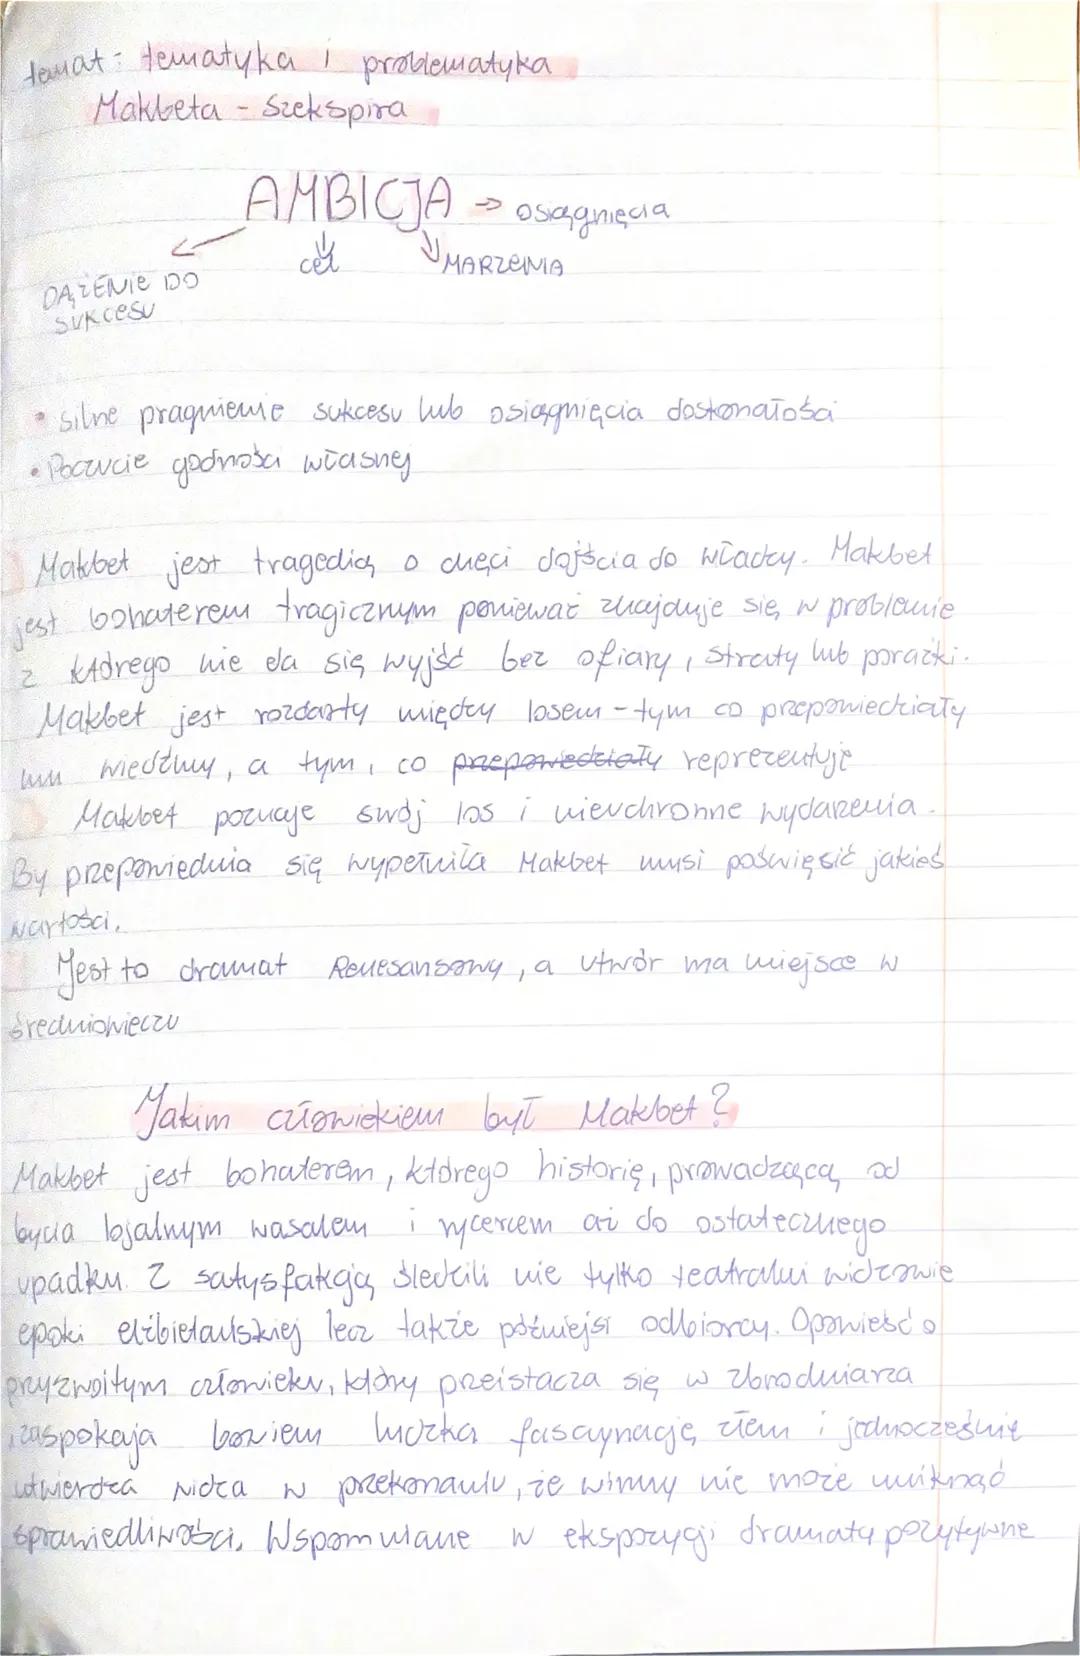 temat: tematyka i problematyka
Makbeta - Szekspira
AMBICJA → osiągnięcia
DĄŻENIE DO
SUKCESU
cel
MARZENIA
• silne pragnienie sukcesu lub osiągnięcia doskonałości
• Poczucie godności własnej
Makbet jest tragedią o chęci dojścia do władzy. Makbet
jest bohaterem tragicznym ponieważ znajduje się w problemie
z którego nie da się wyjść bez ofiary, straty lub porażki.
Makbet jest rozdarty między losem - tym co przepowiedziały
mu wiedźmy, a tym, co przepowiedziały reprezentuje
Makbet poznaje swój los i nieuchronne wydarzenia.
By przepowiednia się wypełniła Makbet musi poświęsić jakieś
wartości.
Jest to dramat Renesansowy, a utwór ma miejsce w
średniowieczu
Jakim człowiekiem był Makbet?
Makbet jest bohaterem, którego historię, prowadzącą od
bycia lojalnym wasalem i rycerzem aż do ostatecznego
upadku. Z satysfakcją śledzili nie tylko teatralni widzowie
epoki elżbietańskiej lecz także późniejsi odbiorcy. Opowieść o
przyzwoitym człowieku, który przeistacza się w zbrodniarza
, zaspokaja bowiem ludzką fascynację złem i jednocześnie
utwierdza widza w przekonaniu, że winny nie może uniknąć
sprawiedliwości. Wspomniane w ekspozycji dramatu pozytywne